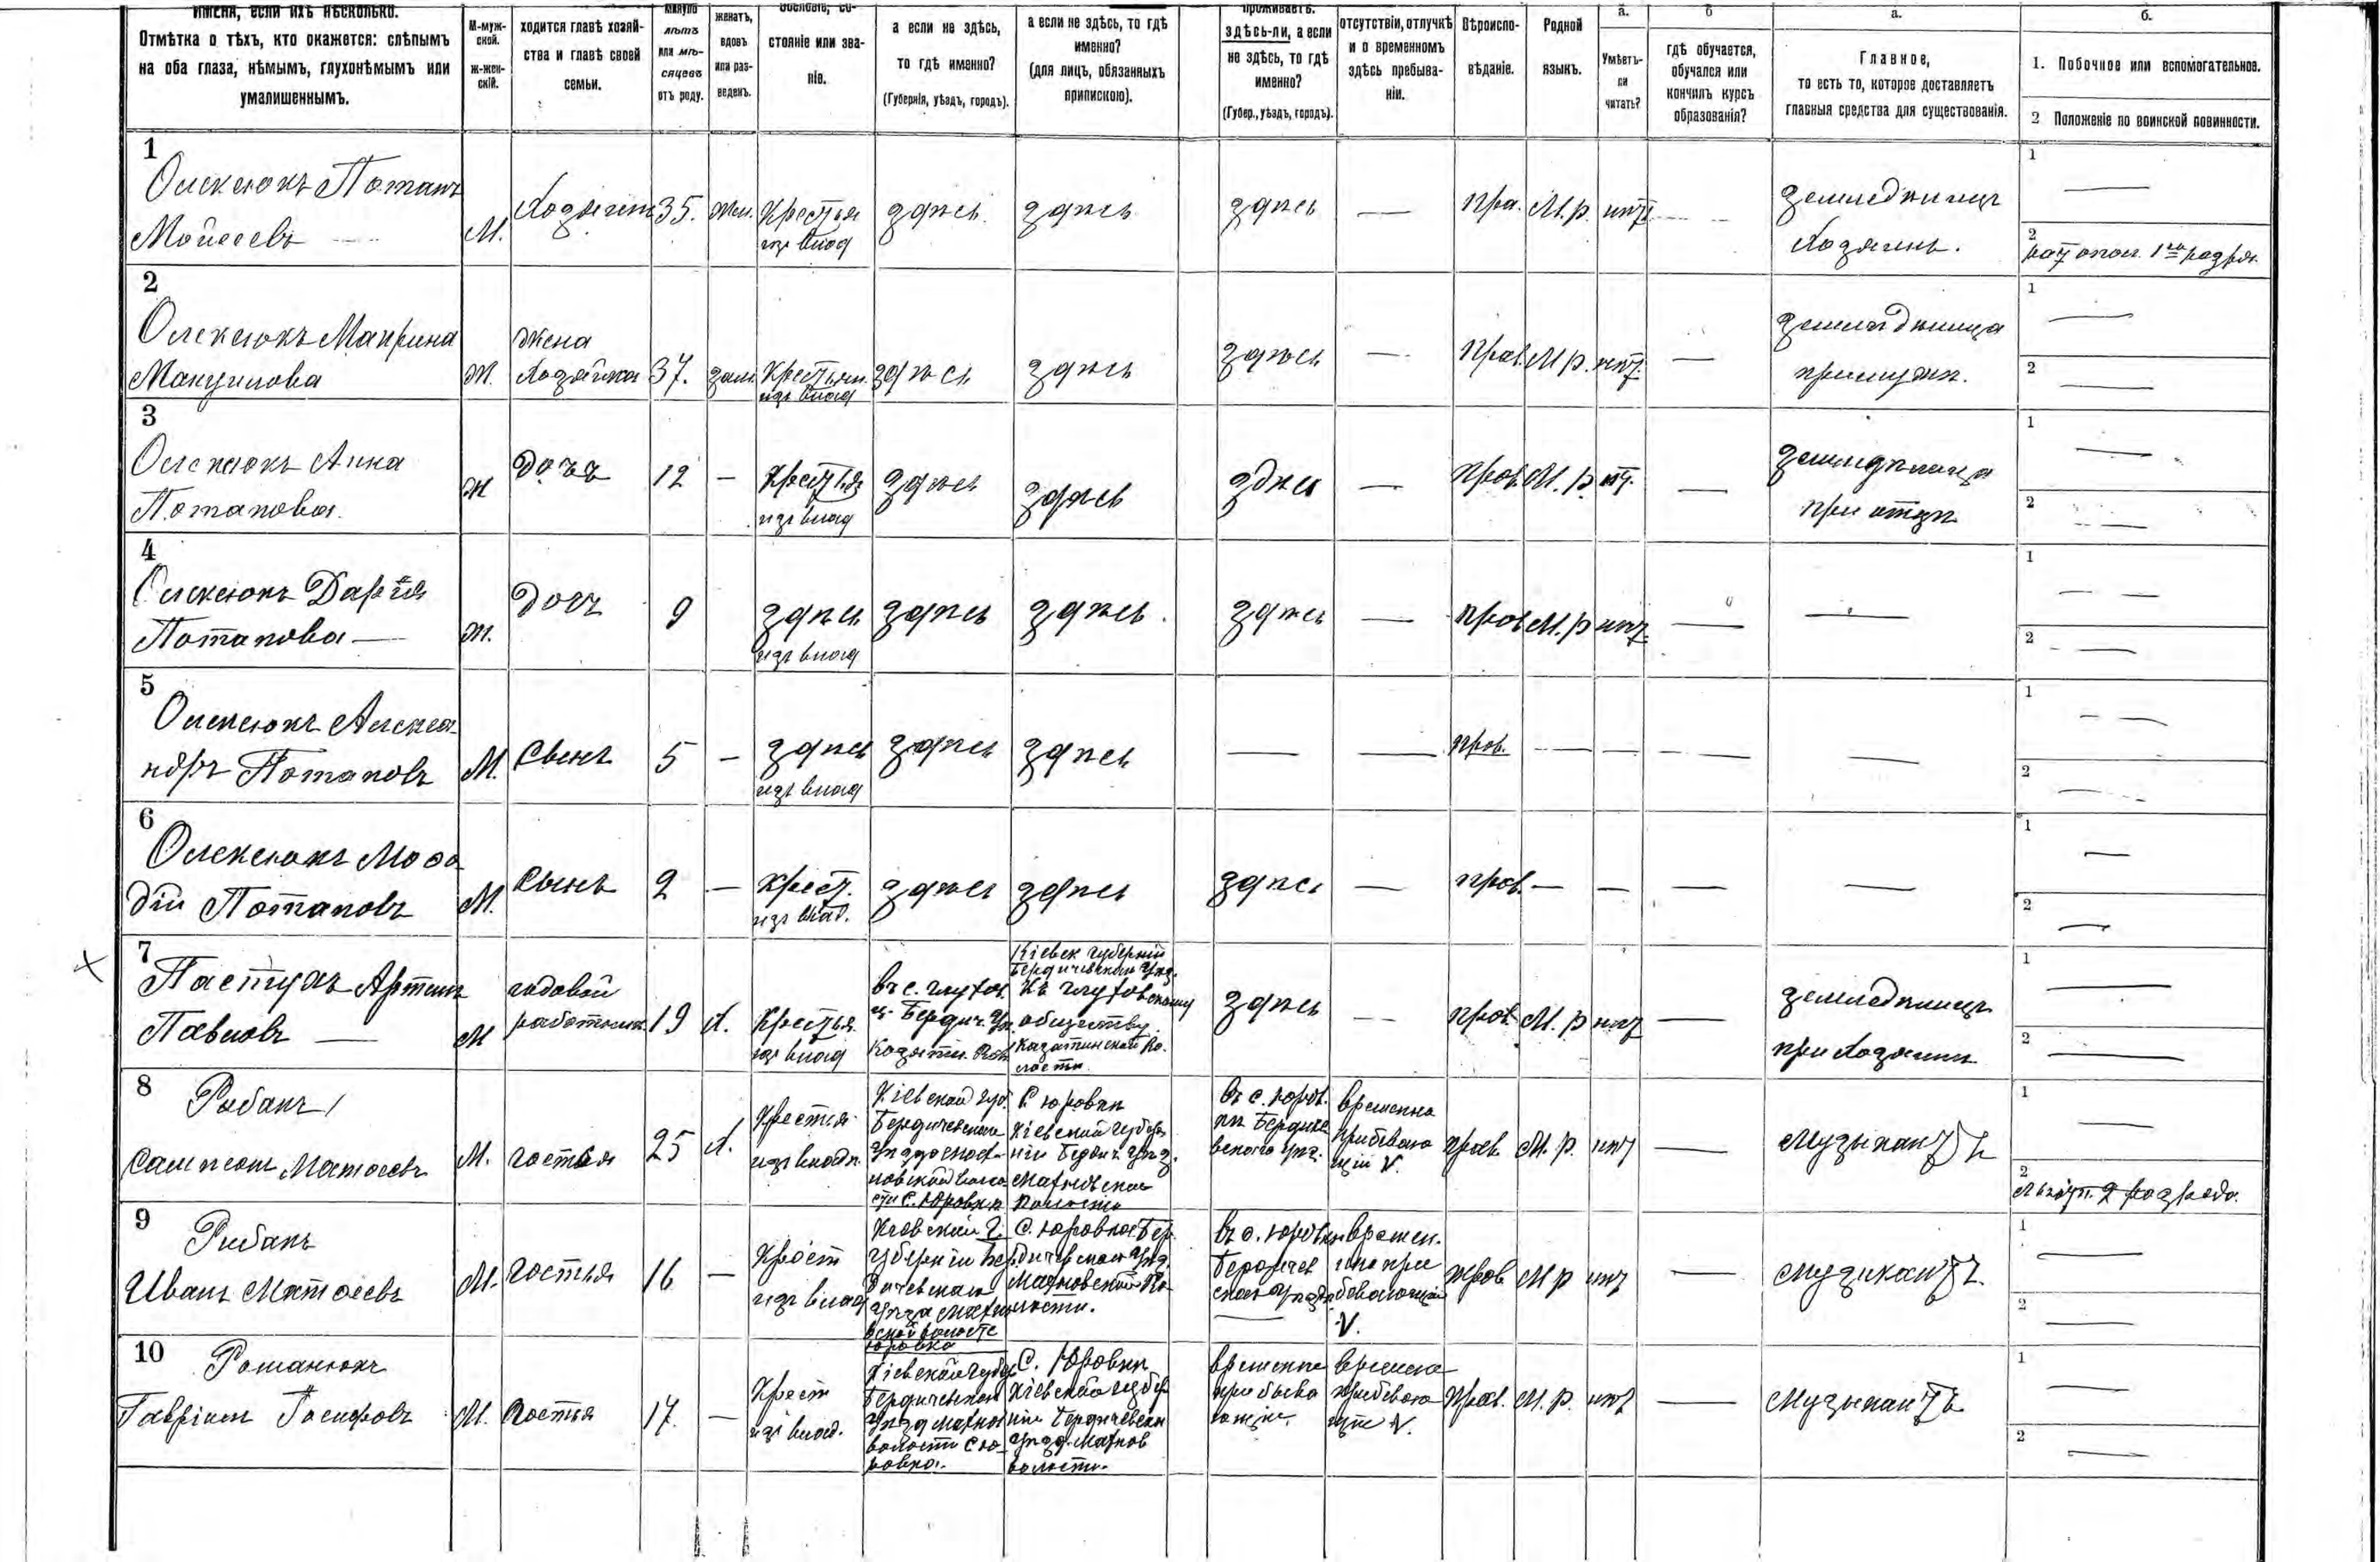 имена, если ихъ нѣсколько.
Отмѣтка о тѣхъ, кто окажется: слѣпымъ
на оба глаза, нѣмымъ, глухонѣмымъ или
умалишеннымъ.
М-муж-
ской.
Ж-жен-
скій.
ходится главѣ хозяй-
ства и главѣ своей
семьи.
минуло
лѣтъ
или мѣ-
сяцевъ
отъ роду.
женатъ,
вдовъ
или раз-
веденъ.
стояніе или зва-
ніе.
а если не здѣсь,
то гдѣ именно?
(Губернія, уѣздъ, городъ).
а если не здѣсь, то гдѣ
именно?
(для лицъ, обязанныхъ
припискою).
проживаетъ:
здѣсь-ли, а если
не здѣсь, то гдѣ
именно?
(Губер., уѣздъ, городъ).
отсутствіи, отлучкѣ
и о временномъ
здѣсь пребыва-
ніи.
Вѣроиспо-
вѣданіе.
Родной
языкъ.
а.
Умѣетъ-
ли
читать?
б
гдѣ обучается,
обучался или
кончилъ курсъ
образованія?
а.
Главное,
то есть то, которое доставляетъ
главныя средства для существованія.
б.
1. Побочное или вспомогательное.
2 Положеніе по воинской повинности.
1
Олексюкъ Потапъ
Мойсеевъ
М.
Хозяинъ
35.
жен.
Крестья
изъ влад
здѣсь.
здѣсь
здѣсь
—
пра.
М.р.
нѣт
земледѣлецъ
Хозяинъ.
1
—
2
рат опол. 1го разря.
2
Олексюкъ Макрина
Ж.
жена
Хозяйка
37.
зам.
Крестьян.
изъ влад
здѣсь
здѣсь
здѣсь
—
Прав.
М р.
нѣт.
—
земледѣлица
при мужѣ.
1
—
2
—
3
Олексюкъ Анна
Потапова.
Ж
Дочъ
12
—
Крестья
изъ влад
здѣсь
здѣсь
здѣсь
—
прав.
М. р.
нѣт.
—
земледѣлица
при отцѣ
1
—
2
—
4
Олексюкъ Дарія
Потапова —
Ж.
Дочъ
9
здѣсь
изъ влад
здѣсь
здѣсь.
здѣсь
—
прав
М.р
нѣт.
—
—
1
— —
2
- —
5
Олексюкъ Алекса
ндръ Потаповъ
М.
Сынъ
5
—
здѣсь
изъ влад
здѣсь
здѣсь
—
—
прав.
—
—
—
—
1
- —
2
—
6
Олексюкъ
дій Потаповъ
М.
Сынъ
2
—
Крест.
изъ влад.
здѣсь
здѣсь
здѣсь
—
прав.
—
—
—
—
1
—
2
—
7
Пастухъ Артемъ
Павловъ —
М
годовой
работникъ
19
Х.
Крестья.
изъ влад
въ с. Глухов.
Бердич. Уѣ.
Козятин. Вол
Кіевск губерніи
Бердичевскаго Уѣз.
Къ Глуховскому
обществу.
Казатинской Во.
лости.
здѣсь
—
прав.
М. р
нѣт
—
земледѣлецъ
при Хозяинѣ
1
—
2
—
8
Рыбакъ
Сампсон Матѳеевъ
М.
гостья
25
Х.
Крестья
изъ влад.
Кіевской губ.
Бердичевскаго
с. Юровки
С. Юровки
Кіевской Губер
ніи Бердич. Уѣзд.
Махновской
Волости
въ с. Юров.
кѣ Бердиче
вскаго уѣз.
временно
прав
М. р.
нѣт
—
музыкантъ
1
—
2
9
Рибакъ
Иванъ Матѳеевъ
М.
гостья
16
—
Крест
изъ влад
Кіевской Г.
Юровка
С. Юровки Бер
дичевскаго Уѣзд.
Махновской Во
лости.
въ с. Юровки
времен.
прав
М р
нѣт
—
музикантъ.
1
—
2
—
10
Романюкъ
М.
гостья
17.
—
Крест
изъ влад.
Кіевской губер
Бердичевскаго
волости с Ю
ровка.
С. Юровки
Кіевской губер
ніи Бердичевск
уѣзд. Махнов
волости.
временно
временно
прав.
М. р.
нѣт
—
Музыкантъ
1
—
2
—